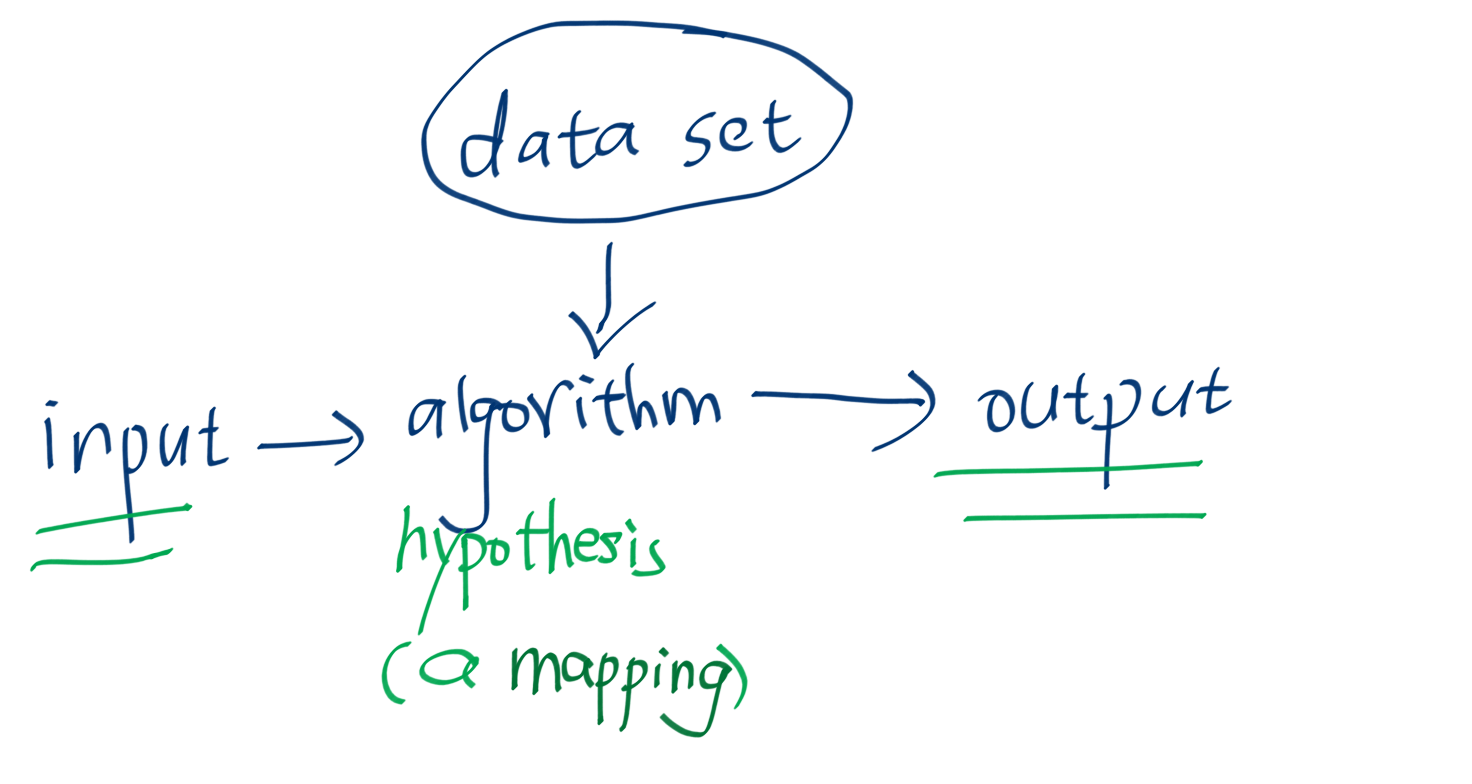 data set
input → algorithm → output
hypothesis
(a mapping)